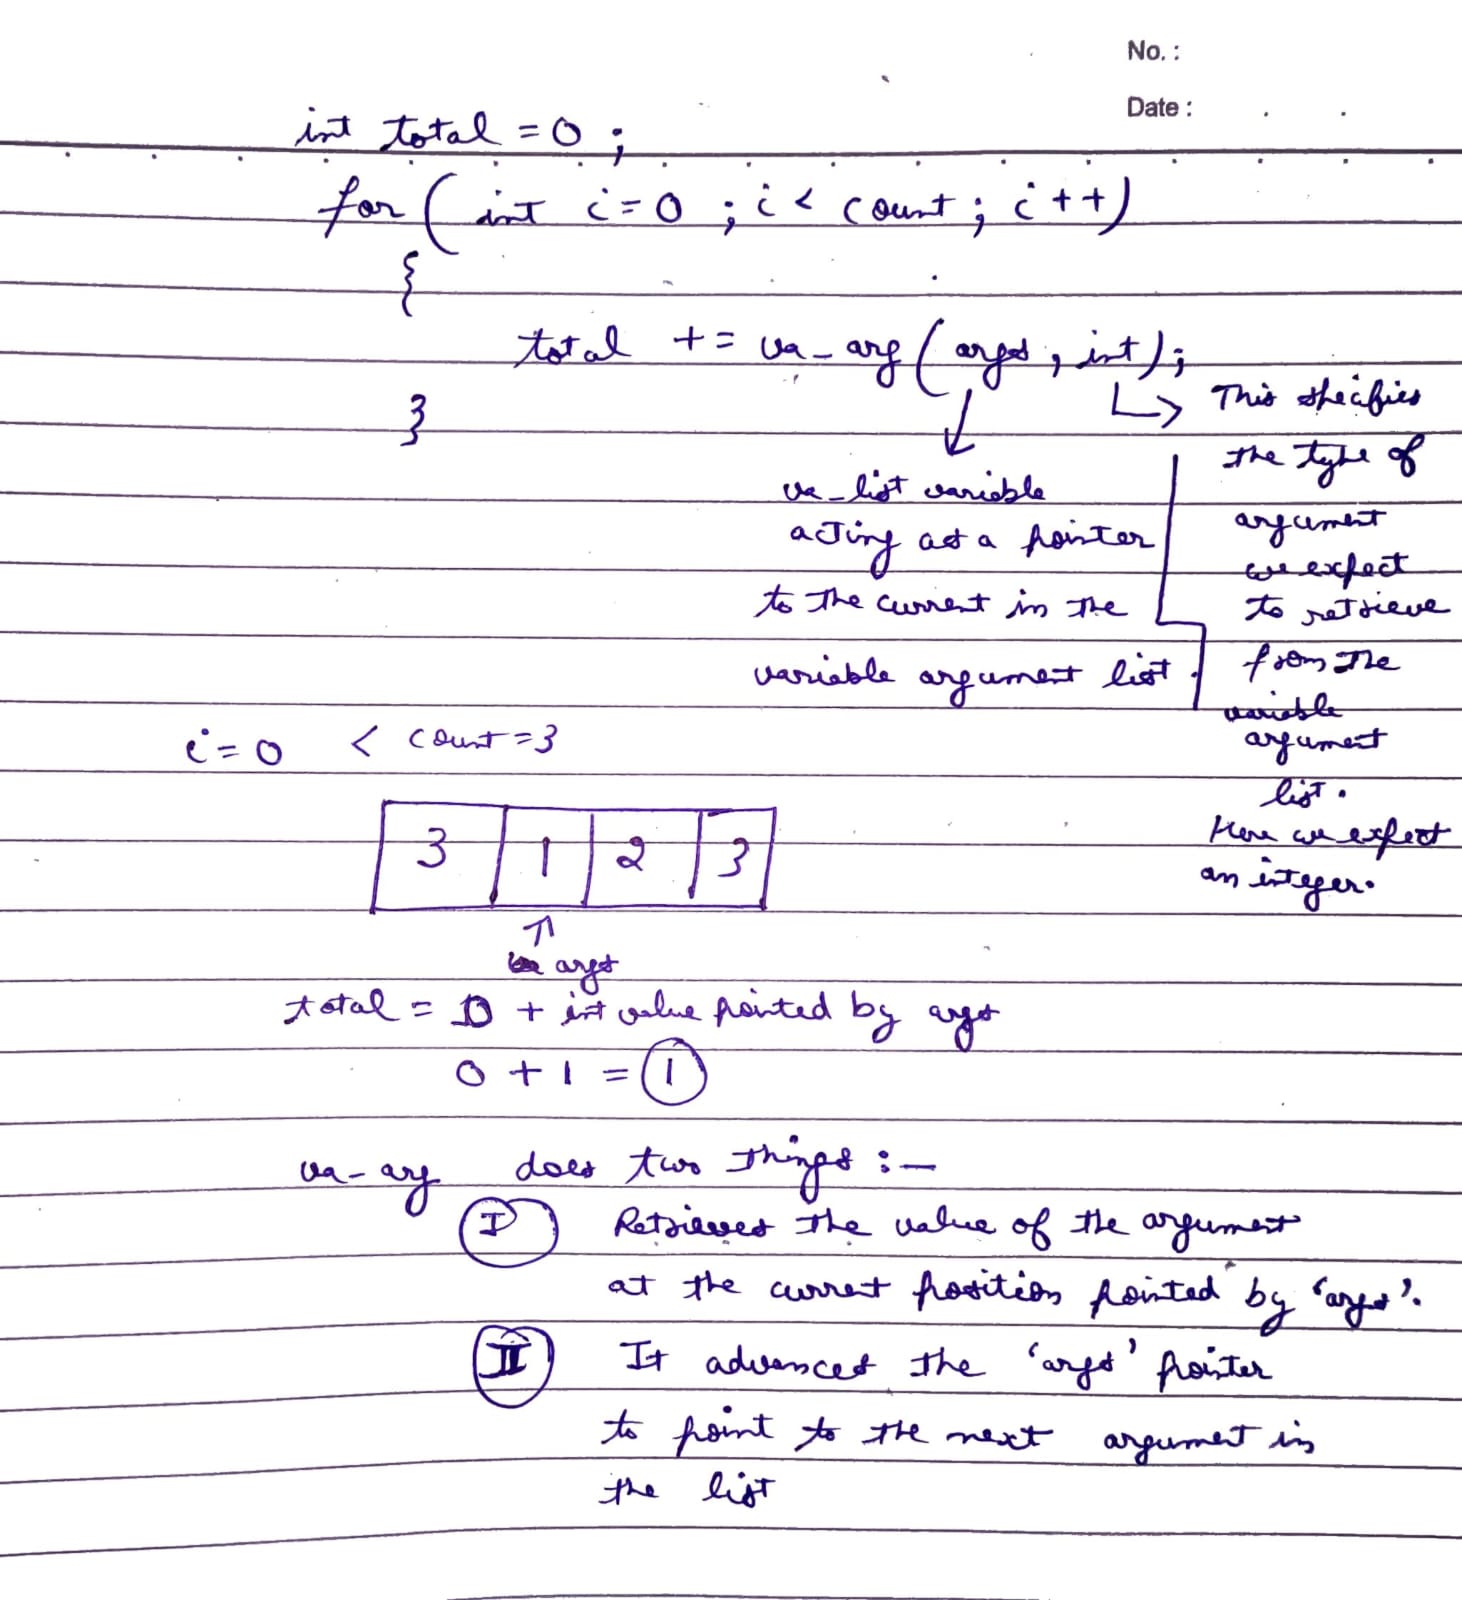 No. :
Date :
int total = 0 ;
for ( int i = 0 ; i < count ; i ++ )
{
total += va_arg ( args , int ) ;
}
va_list variable
acting as a pointer
to the current in the
variable argument list .
This specifies
the type of
argument
we expect
to retrieve
from the
variable
argument
list .
Here we expect
an integer .
i = 0 < count = 3
3 1 2 3
args
total = 0 + int value pointed by args
0 + 1 = 1
va_arg does two things :-
I Retrieves the value of the argument
at the current position pointed by 'args' .
II It advances the 'args' pointer
to point to the next argument in
the list